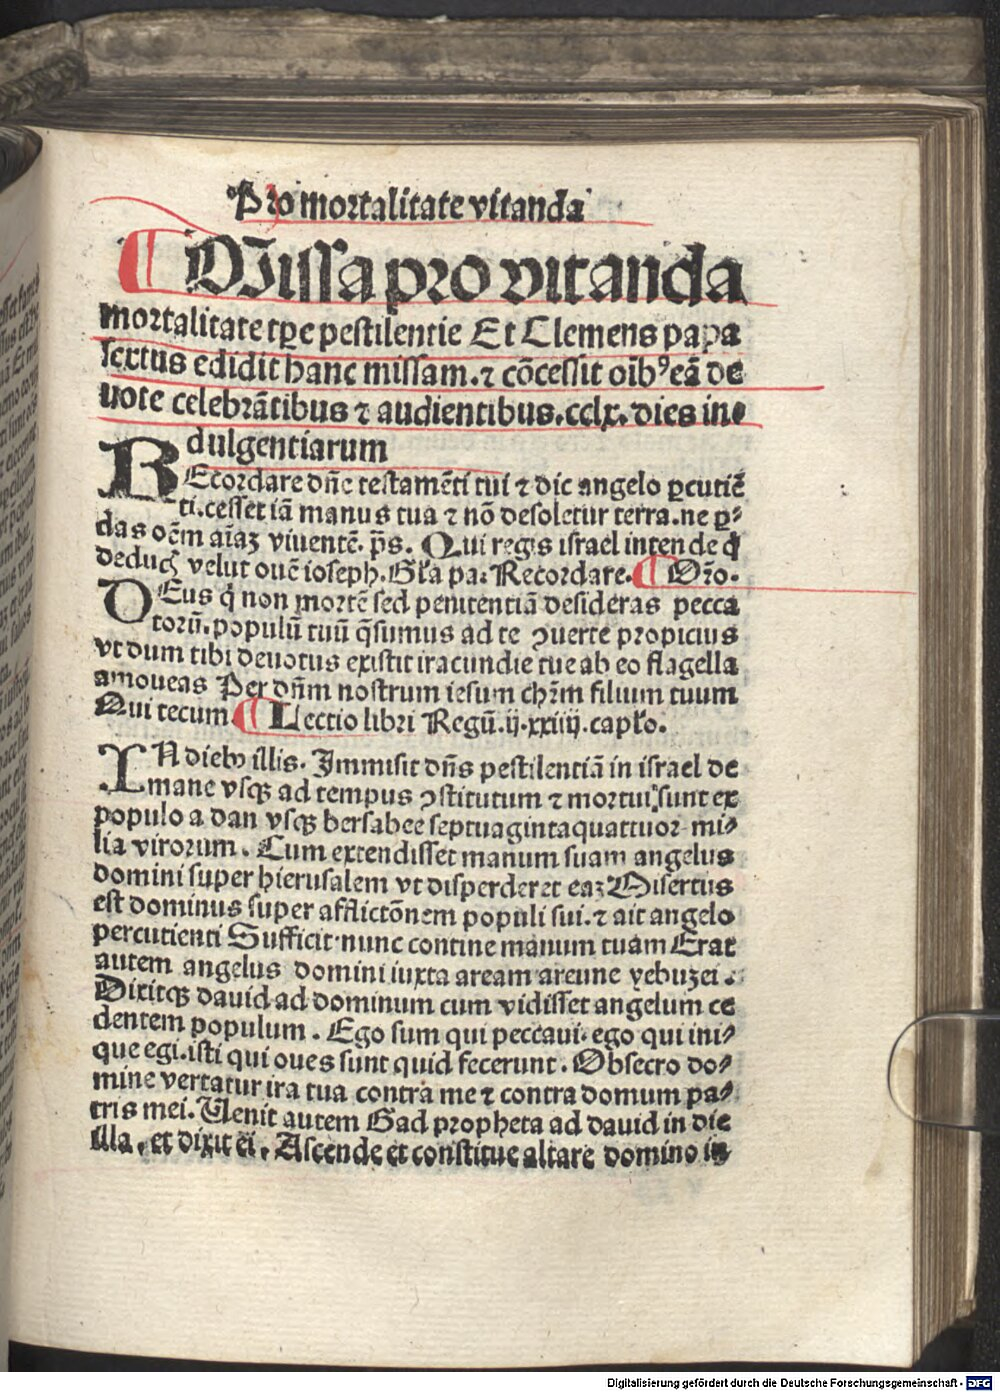 Pro mortalitate vitanda
¶ Missa pro vitanda
mortalitate tꝑe pestilentie Et Clemens papa
sextus edidit hanc missam. ⁊ cōcessit oībꝰ eā de
uote celebrātibus ⁊ audientibus. cclx. dies in⸗
dulgentiarum
REcordare dñe testamēti tui ⁊ dic angelo ꝑcutiē
ti. cesset iā manus tua ⁊ nō desoletur terra. ne ꝑ⸗
das oēm aīaꝫ viuentē. p̄s. Qui regis israel intende q̇
deducꝭ velut ouē ioseph. Gl̄a pa. Recordare. ¶ Or̄o.
DEus q̇ non mortē sed penitentiā desideras pecca
torū. populū tuū q̄sumus ad te ꝯuerte propicius
vt dum tibi deuotus existit iracundie tue ab eo flagella
amoueas Per dñm nostrum iesum chr̄m filium tuum
Qui tecum ¶ Lectio libri Regū. ij. xxiiij. capł̄o.
IN diebꝰ illis. Immisit dñs pestilentiā in israel de
mane vsqꝫ ad tempus ꝯstitutum ⁊ mortui sunt ex
populo a dan vsqꝫ bersabee septuagintaquattuor mi⸗
lia virorum. Cum extendisset manum suam angelus
domini super hierusalem vt disperderet eaꝫ Misertus
est dominus super afflictōnem populi sui. ⁊ ait angelo
percutienti Sufficit nunc contine manum tuam Erat
autem angelus domini iuxta aream areune yebuzei.
Dixitqꝫ dauid ad dominum cum vidisset angelum ce
dentem populum. Ego sum qui peccaui. ego qui ini⸗
que egi. isti qui oues sunt quid fecerunt. Obsecro do⸗
mine vertatur ira tua contra me ⁊ contra domum pa⸗
tris mei. Venit autem Gad propheta ad dauid in die
illa, et dixit ei. Ascende et constitue altare domino in
Digitalisierung gefördert durch die Deutsche Forschungsgemeinschaft - DFG